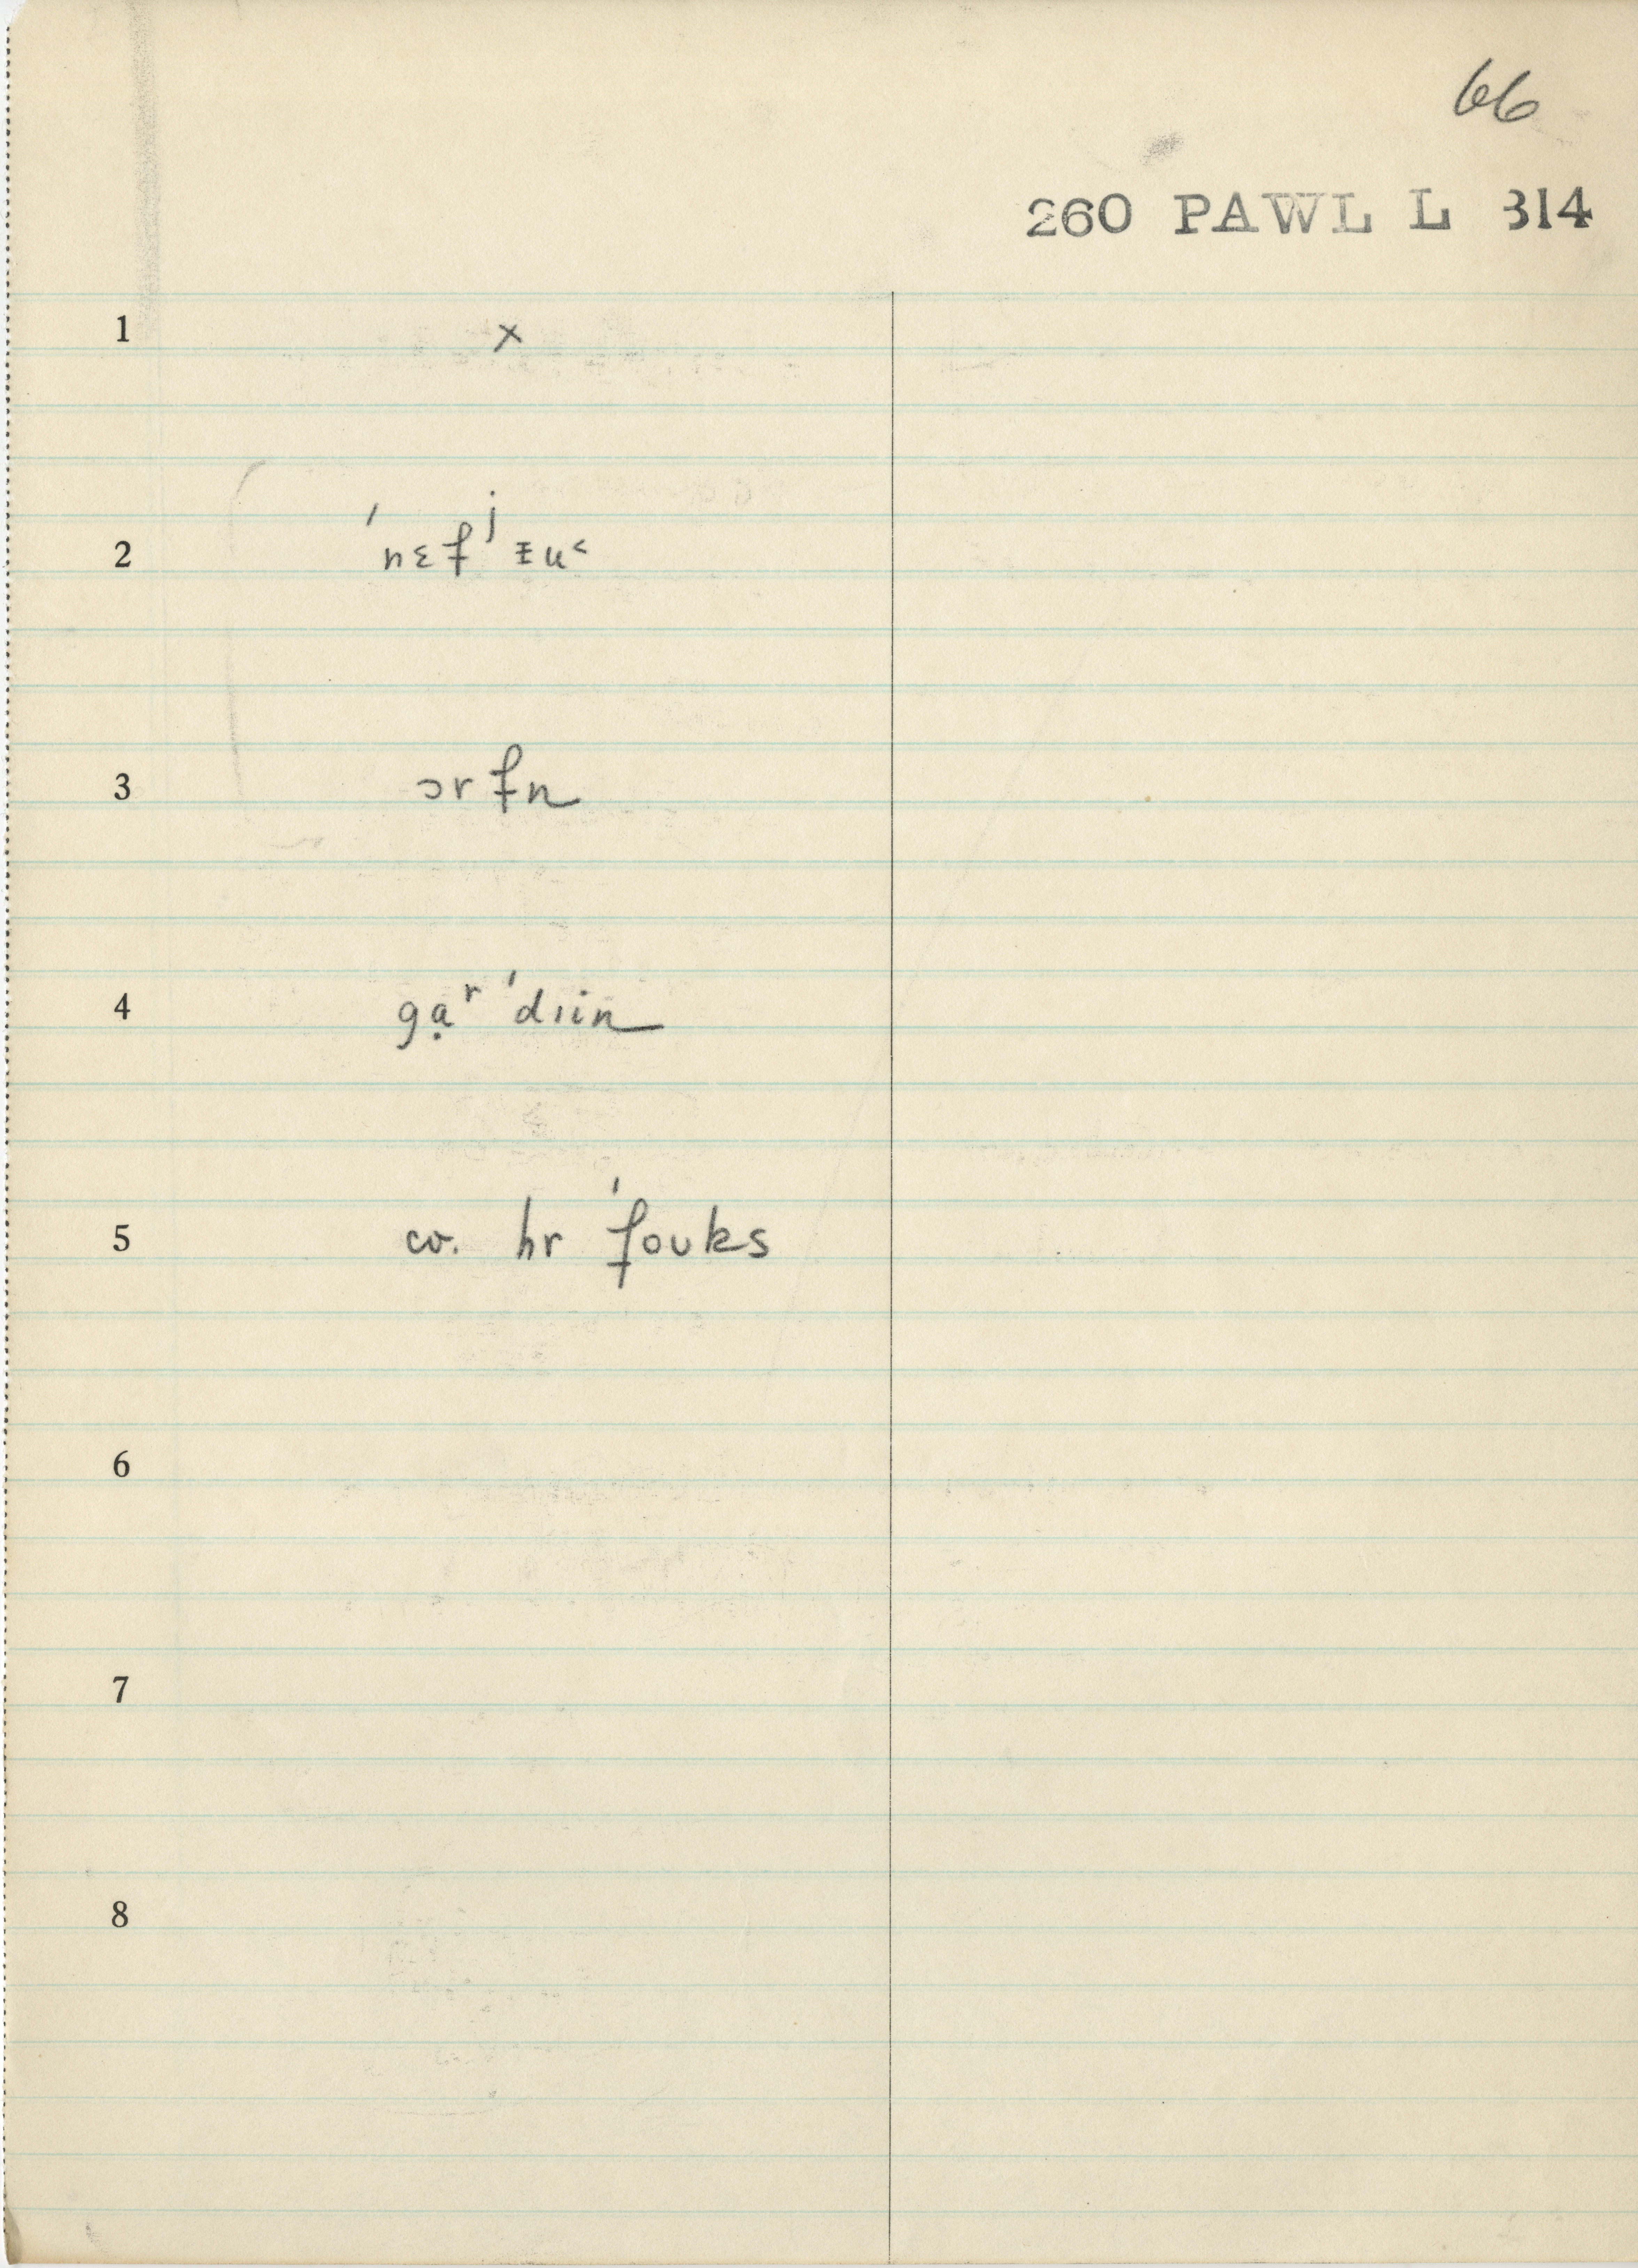 66
260 PAWL L 314
1 x
2 ˈnɛfʲᵻu˂
3 ɔrfn
4 gạʳ ˈdɪin
5 cv. hr ˈfoʊks
6
7
8